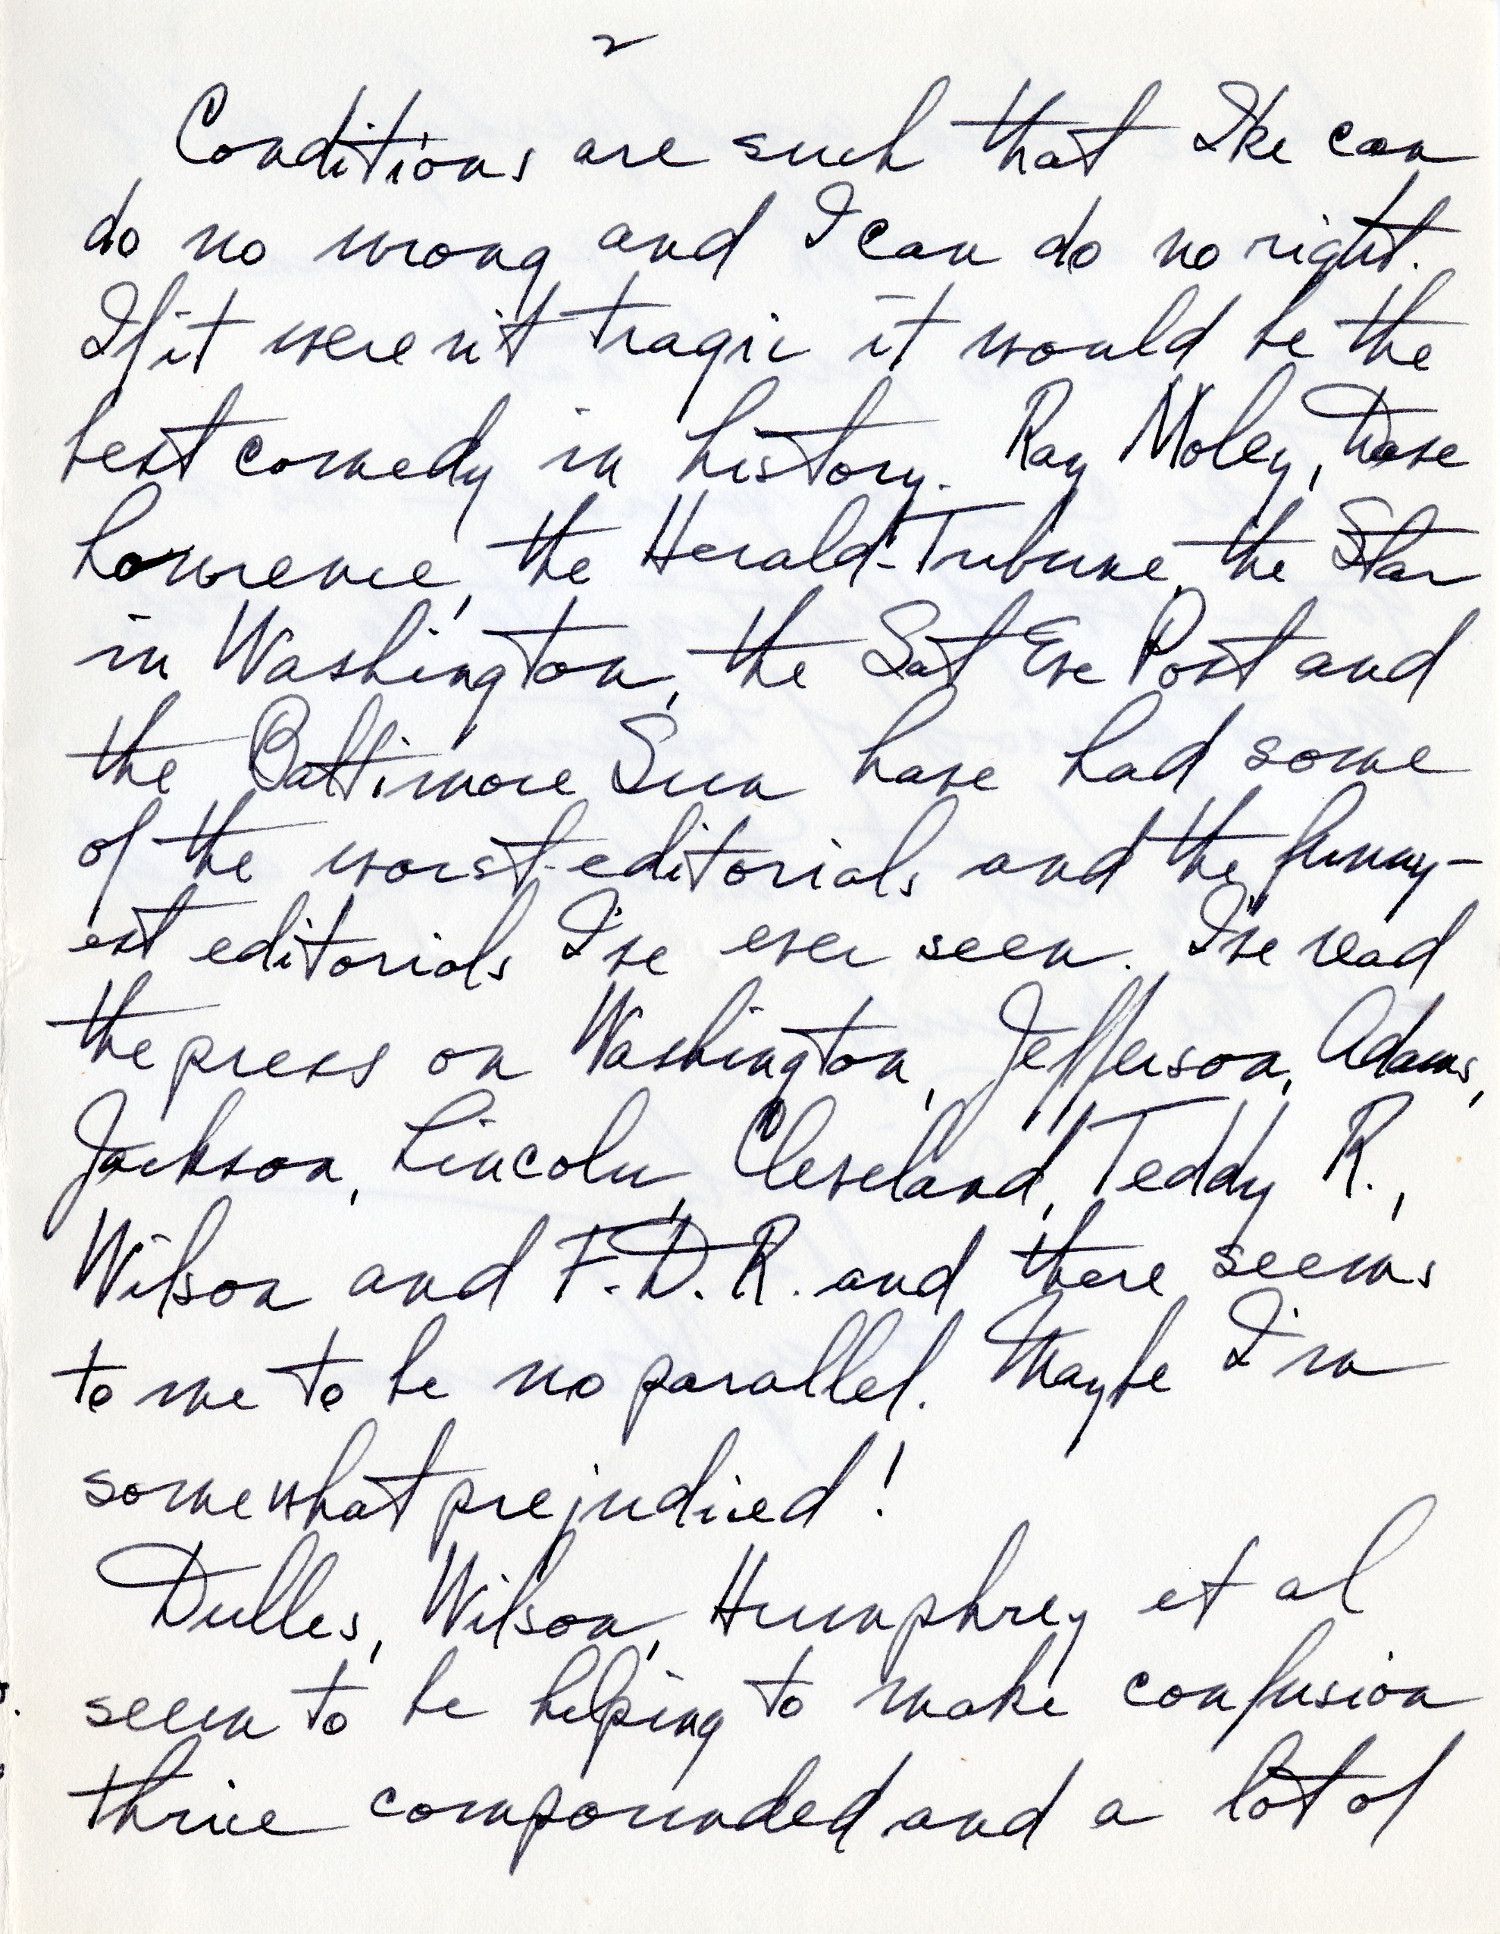 2
Conditions are such that Ike can
do no wrong and I can do no right.
If it weren't tragic it would be the
best comedy in history. Ray Moley, Dave
Lawrence, the Herald-Tribune, the Star
in Washington, the Sat Eve Post and
the Baltimore Sun have had some
of the worst editorials and the funny-
est editorials I've ever seen. I've read
the press on Washington, Jefferson, Adams,
Jackson, Lincoln, Cleveland, Teddy R.,
Wilson and F.D.R. and there seems
to me to be no parallel. Maybe I'm
somewhat prejudiced!
Dulles, Wilson, Humphrey et al
seem to be helping to make confusion
thrice compounded and a lot of